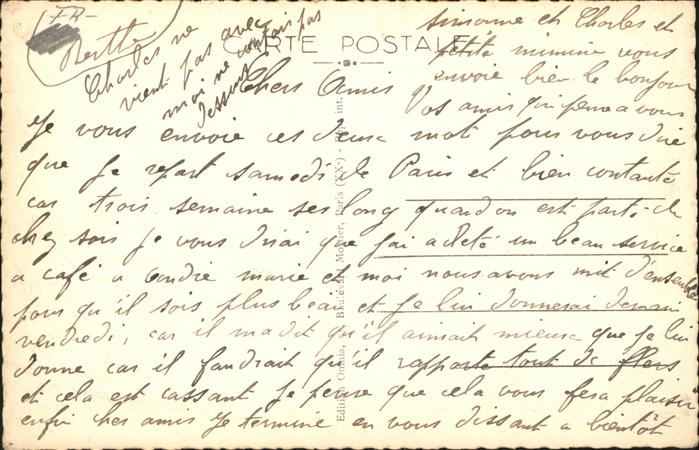 FR-
Berthe
Charles ne
vient pas avec
moi ne comtais pas
dessus
CARTE POSTALE
Simonne et Charles et
petite mimine vous
envoie bien le bonjour
Vos amis qui pense a vous
Chers Amis
Je vous envoie ces deux mot pour vous dire
que je repart samedi de Paris et bien contante
car trois semaine ses long quand on est partie de
chez sois je vous dirai que j'ai acheté un beau service
a café a andre marie et moi nous avons mit d'ensemble
pour qu'il sois plus beau et je lui donnerai demain
vendredi, car il m'a dit qu'il aimait mieux que je lui
donne car il faudrait qu'il rapporte tout de flers
et cela est cassant je pense que cela vous fera plaisir
enfin cher amis je termine en vous dissant a bientôt
Paris (XXe)